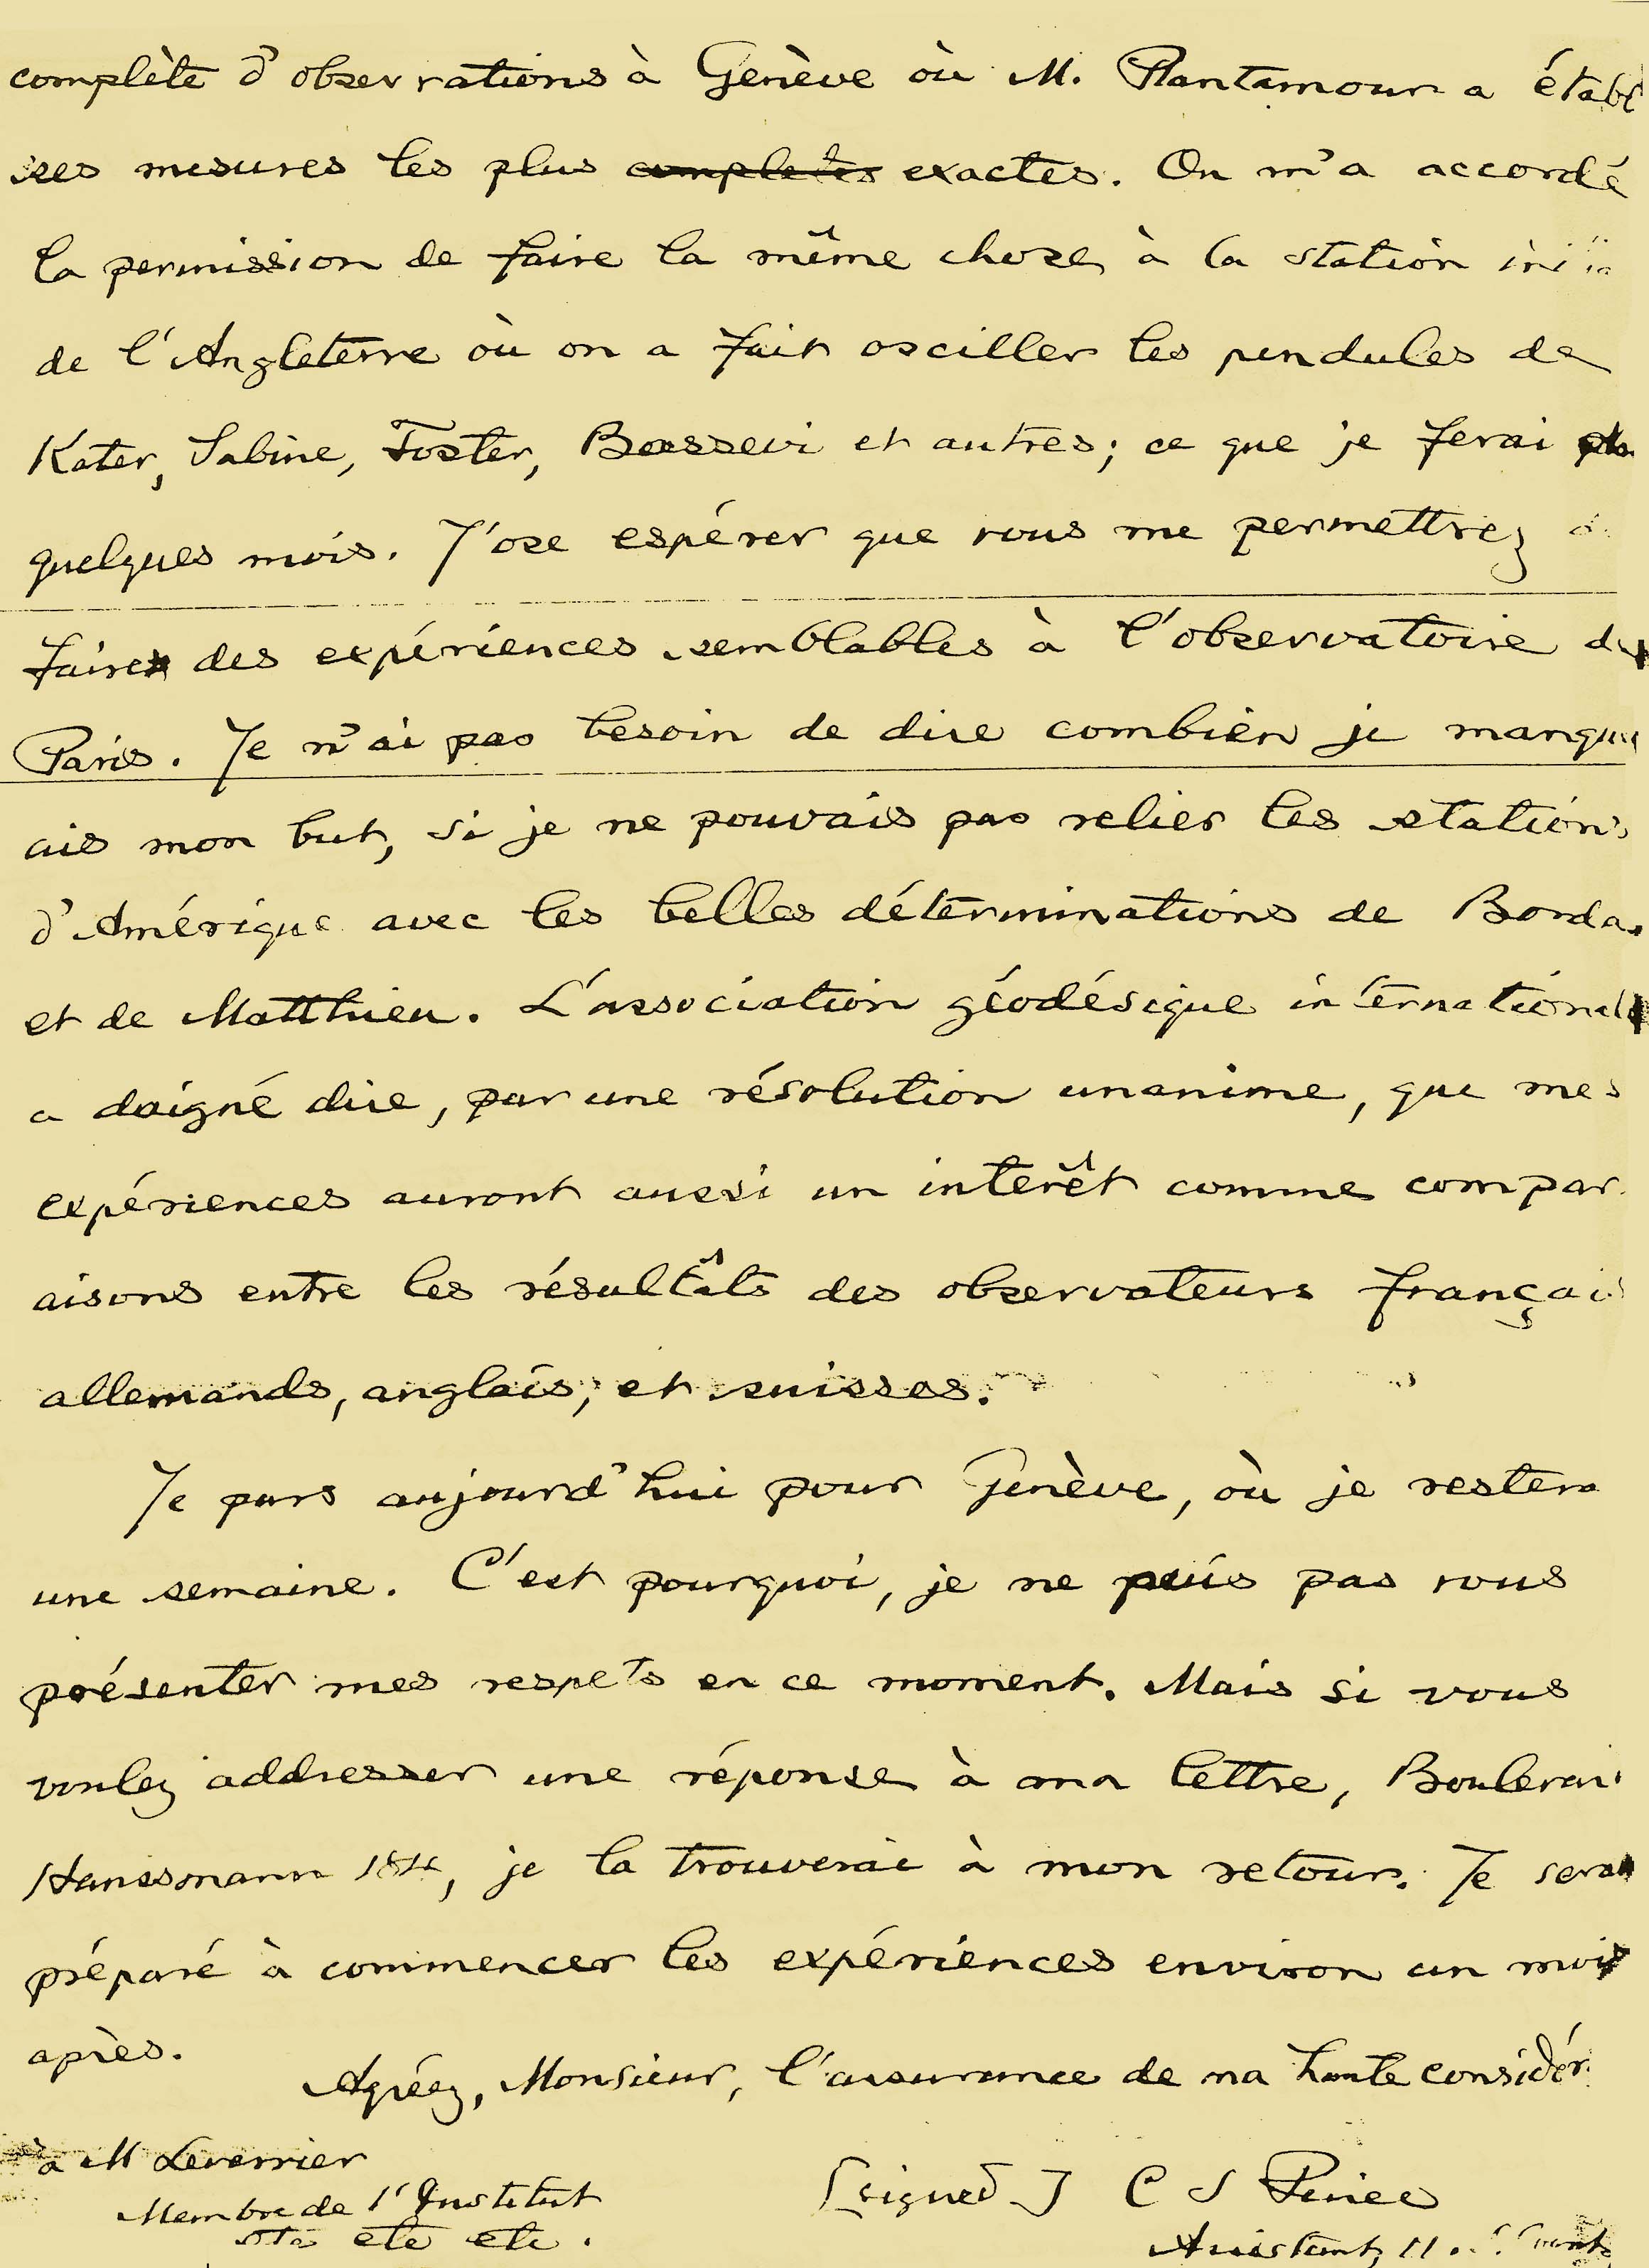 complète d'observations à Genève où M. Plantamour a établ
ses mesures les plus complètes exactes. On m'a accordé
la permission de faire la même chose à la station
de l'Angleterre où on a fait osciller les pendules de
Kater, Sabine, Foster, Bassevi et autres; ce que je ferai
quelques mois. J'ose espérer que vous me permettrez
faire des expériences semblables à l'observatoire de
Paris. Je n'ai pas besoin de dire combien je manquer
ais mon but, si je ne pouvais pas relier les stations
d'Amérique avec les belles déterminations de Borda
et de Matthieu. L'association géodésique internationale
a daigné dire, par une résolution unanime, que mes
expériences auront aussi un interêt comme compar
aisons entre les résultâts des observateurs françai
allemands, anglais, et suisses.
Je pars aujourd'hui pour Genève, où je restera
une semaine. C'est pourquoi, je ne puis pas vous
présenter mes respets en ce moment. Mais si vous
voulez addresser une réponse à ma lettre, Boulevar
Haussmann, je la trouverai à mon retour. Je serai
préparé à commencer les expériences environ un mois
après.
Agréez, Monsieur, l'assurance de ma haute considér
à M Leverrier
Membre de l'Institut
etc etc etc.
[signed] C S Peirce
Assistant,